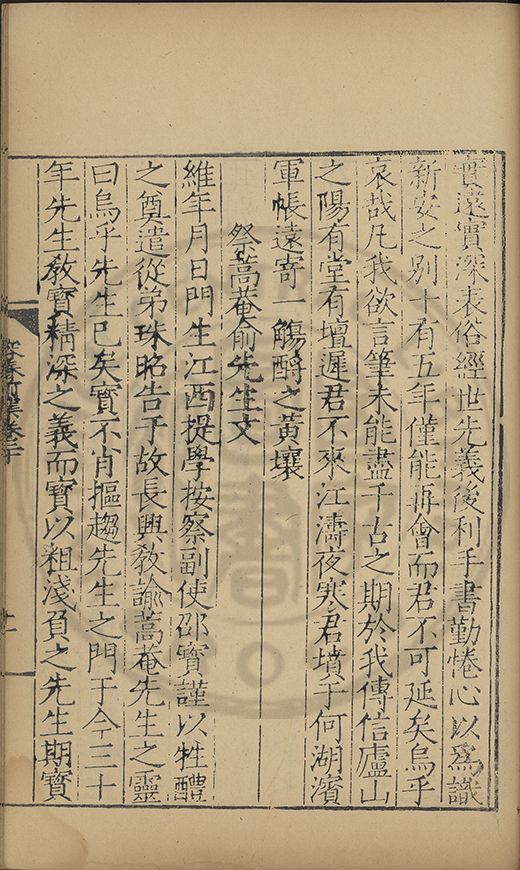 實遠實深表俗經世先義後利手書勤惓心以爲識
新安之别十有五年僅能再會而君不可延矣烏乎
哀哉凡我欲言筆未能盡千古之期於我傳信廬山
之陽有堂有壇遲君不來江濤夜寒君墳于何湖濱
軍帳遠寄一觴酹之黄壤
祭蒿菴俞先生文
維年月日門生江西提學按察副使邵寶謹以牲醴
之奠遣從弟珠昭告于故長興敎諭蒿菴先生之靈
曰烏乎先生已矣寶不肖摳趨先生之門于今三十
年先生敎寶精深之義而寶以粗淺負之先生期寶
容春
集卷二十